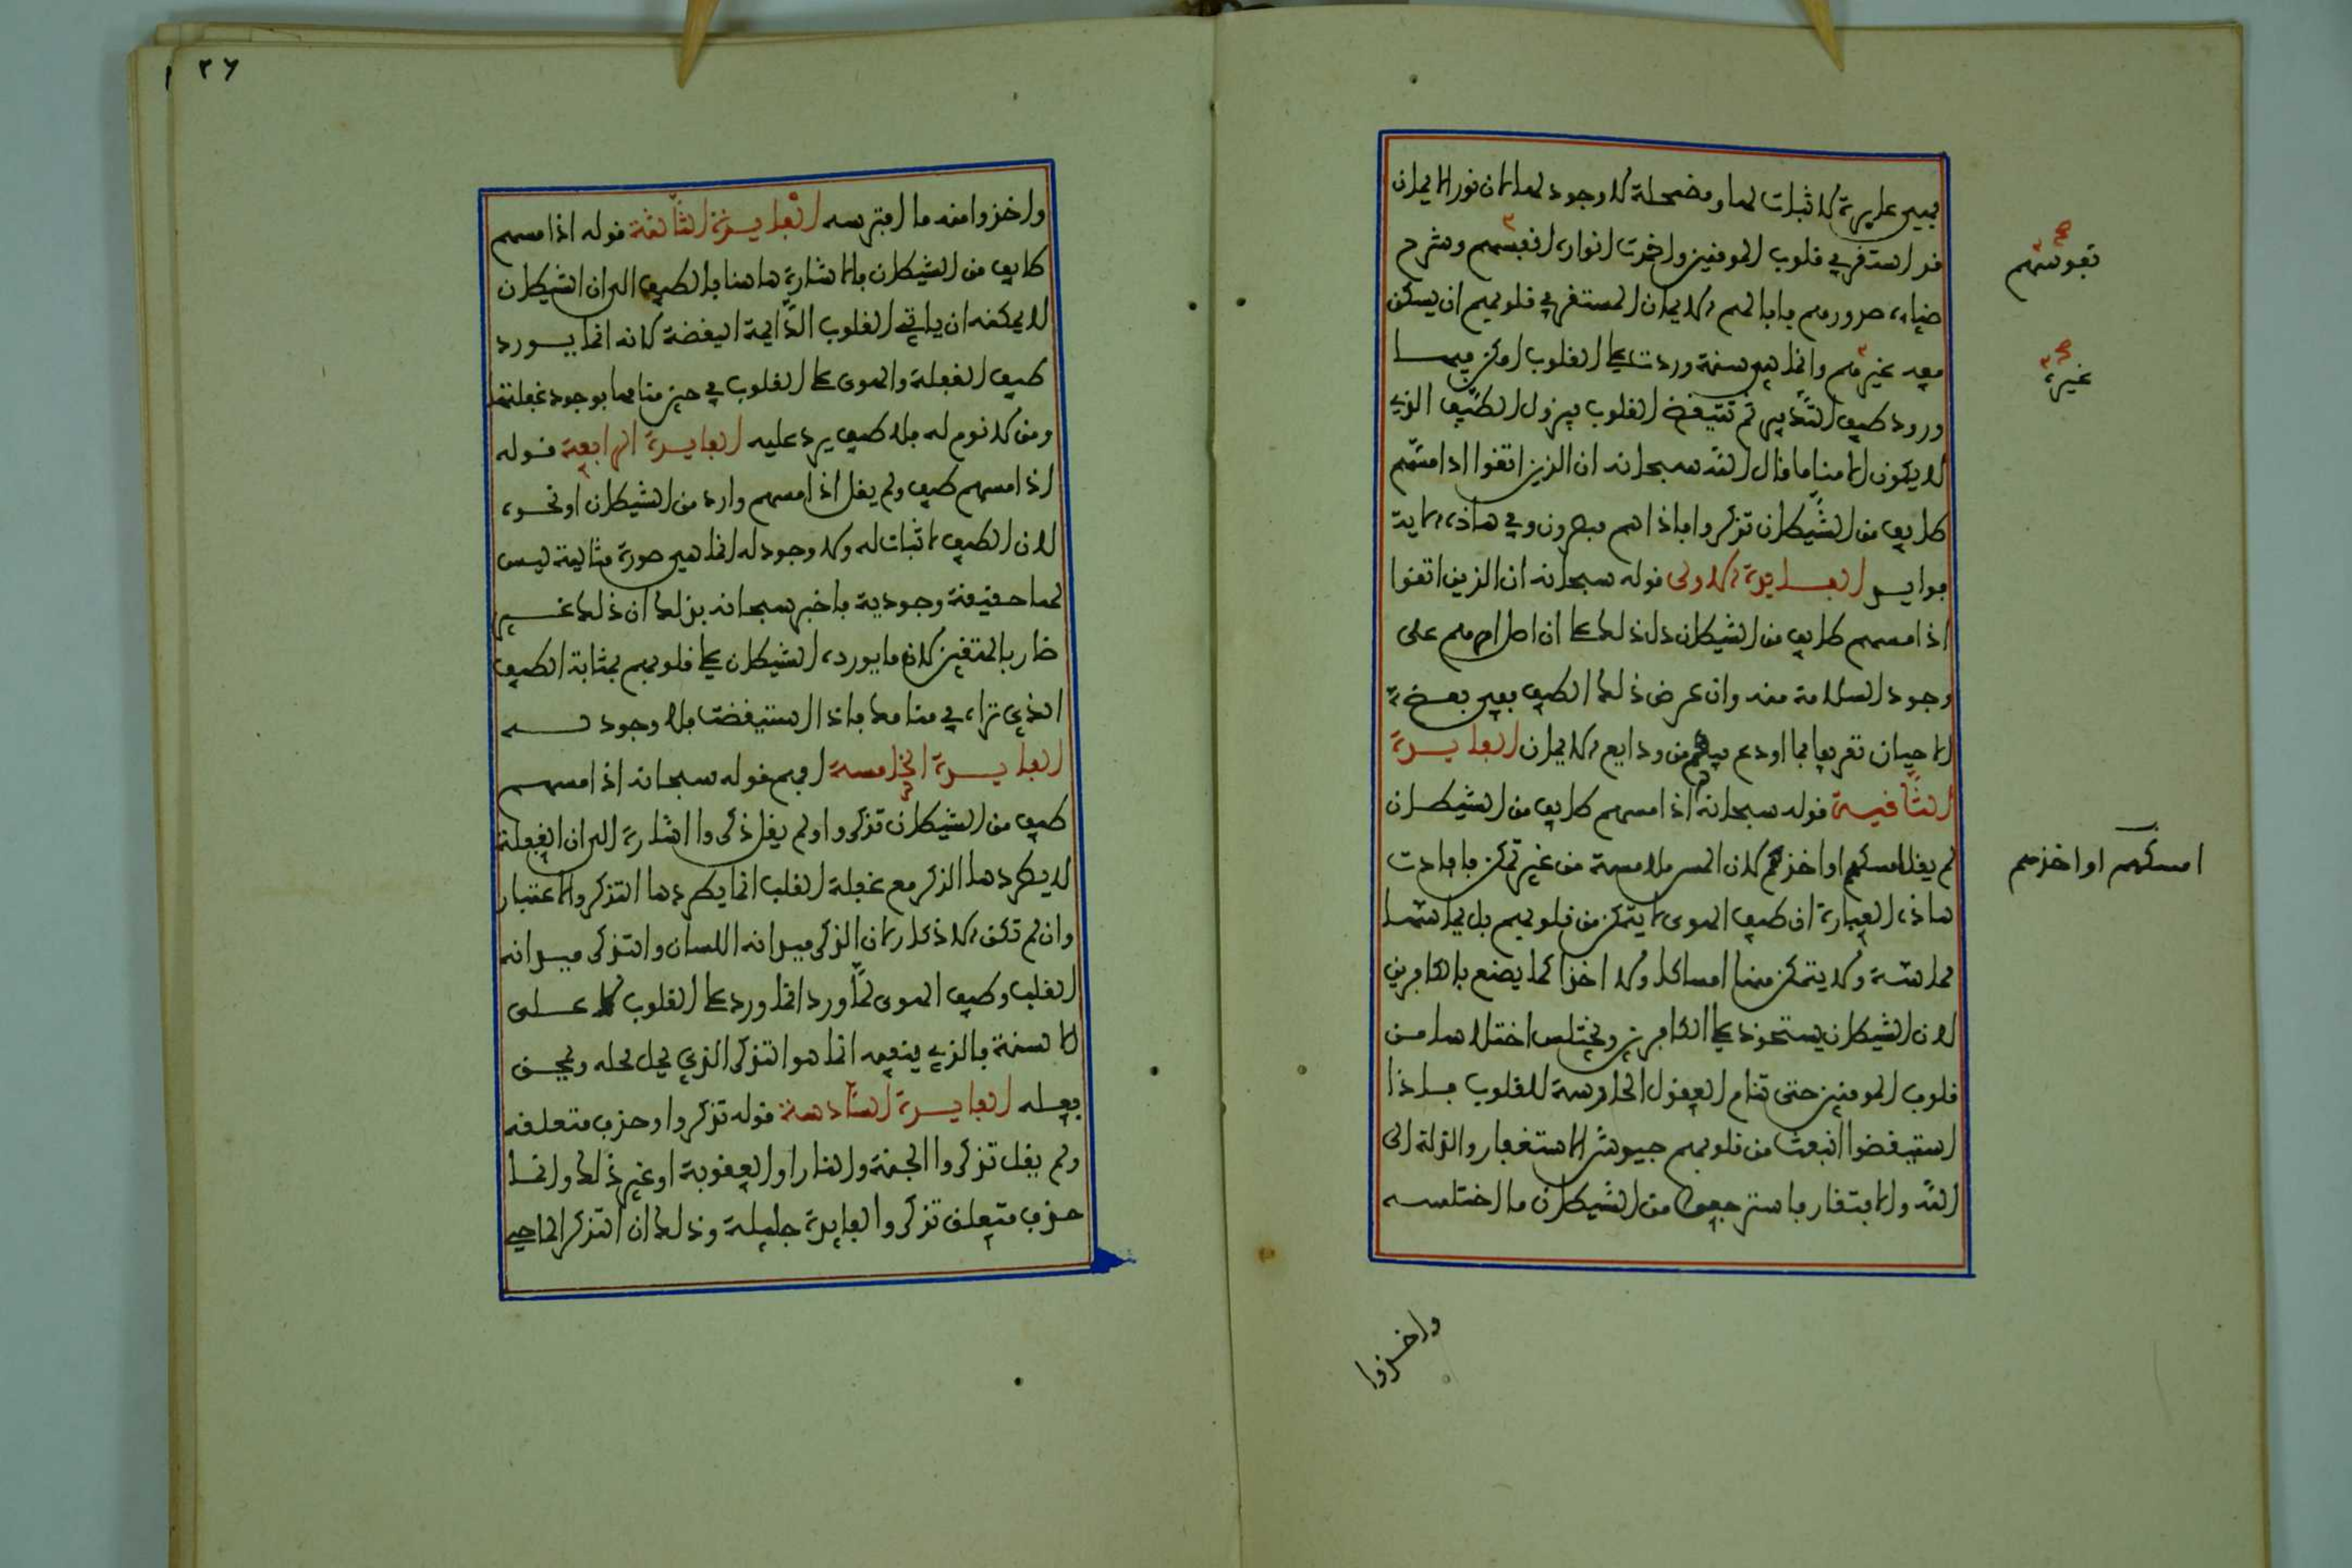 فهي عارية لا ثبات لها ومضمحلة لا وجود لها لان نور الايمان
قد استقر في قلوب المومنين واخمدت انواره نفوسهم وشرح
ضياءه صدورهم فابا لهم الايمان المستقر في قلوبهم ان يسكن
معه غيرهم وانما هي سنة وردت على القلوب امكن فيها
ورود طيف التدبير ثم تتيقظ القلوب فيزول الطيف الذي
لا يكون الا مناما قال الله سبحانه ان الذين اتقوا اذا مسهم
طايف من الشيطان تذكروا فاذا هم مبصرون وفي هاذه الاية
فوايد الفايدة الاولى قوله سبحانه ان الذين اتقوا
اذا مسهم طايف من الشيطان دل ذلك على ان اصل امرهم على
وجود السلامة منه وان عرض ذلك الطيف ففي بعض
الاحيان تعريفا بما اودع فيهم من ودايع الايمان الفايدة
الثانية قوله سبحانه اذا مسهم طايف من الشيطان
لم يقل امسكهم او اخذهم لان المس ملامسة من غير تمكن فافادت
هاذه العبارة ان طيف الهوى لا يتمكن من قلوبهم بل يماسها
مماسة ولا يتمكن منها امساكا ولا اخذا كما يصنع بالكافرين
لان الشيطان يستحوذ على الكافرين ويختلس اختلاسا من
قلوب المومنين حتى تنام العقول الحارسة للقلوب فاذا
استيقظوا انبعث من قلوبهم جيوش الاستغفار والذلة الى
الله والافتقار فاسترجعوا من الشيطان ما اختلسه
نفوسهم
غيره
امسكهم او اخذهم
واخذوا
٢٦
واخذوا منه ما افترسه الفايدة الثالثة قوله اذا مسهم
طايف من الشيطان فالاشارة هاهنا بالطيف الى ان الشيطان
لا يمكنه ان ياتي القلوب الدايمة اليقضة لانه انما يورد
طيف الغفلة والهوى على القلوب في حين منامها بوجود غفلتها
ومن لا نوم له فلا طيف يرد عليه الفايدة الرابعة قوله
اذا مسهم طيف ولم يقل اذا مسهم وارد من الشيطان او نحوه
لان الطيف لا ثبات له ولا وجود له انما هي صورة مثالية ليس
لها حقيقة وجودية فاخبر سبحانه بذلك ان ذلك غير
ضار بالمتقين لان ما يورده الشيطان على قلوبهم بمثابة الطيف
الذي تراه في منامك فاذا استيقضت فلا وجود له
الفايدة الخامسة افهم قوله سبحانه اذا مسهم
طيف من الشيطان تذكروا ولم يقل ذكروا اشارة الى ان الغفلة
لا يطردها الذكر مع غفلة القلب انما يطردها التذكر والاعتبار
وان لم تكن الاذكار لان الذكر ميدانه اللسان والتذكر ميدانه
القلب وطيف الهوى لما ورد انما ورد على القلوب لا على
الالسنة فالذي ينفيه انما هو التذكر الذي يحل محله ويمحق
فعله الفايدة السادسة قوله تذكروا وحذف متعلقه
ولم يقل تذكروا الجنة والنار او العقوبة او غير ذلك وانما
حذف متعلق تذكروا لفايدة جليلة وذلك ان التذكر الماحي